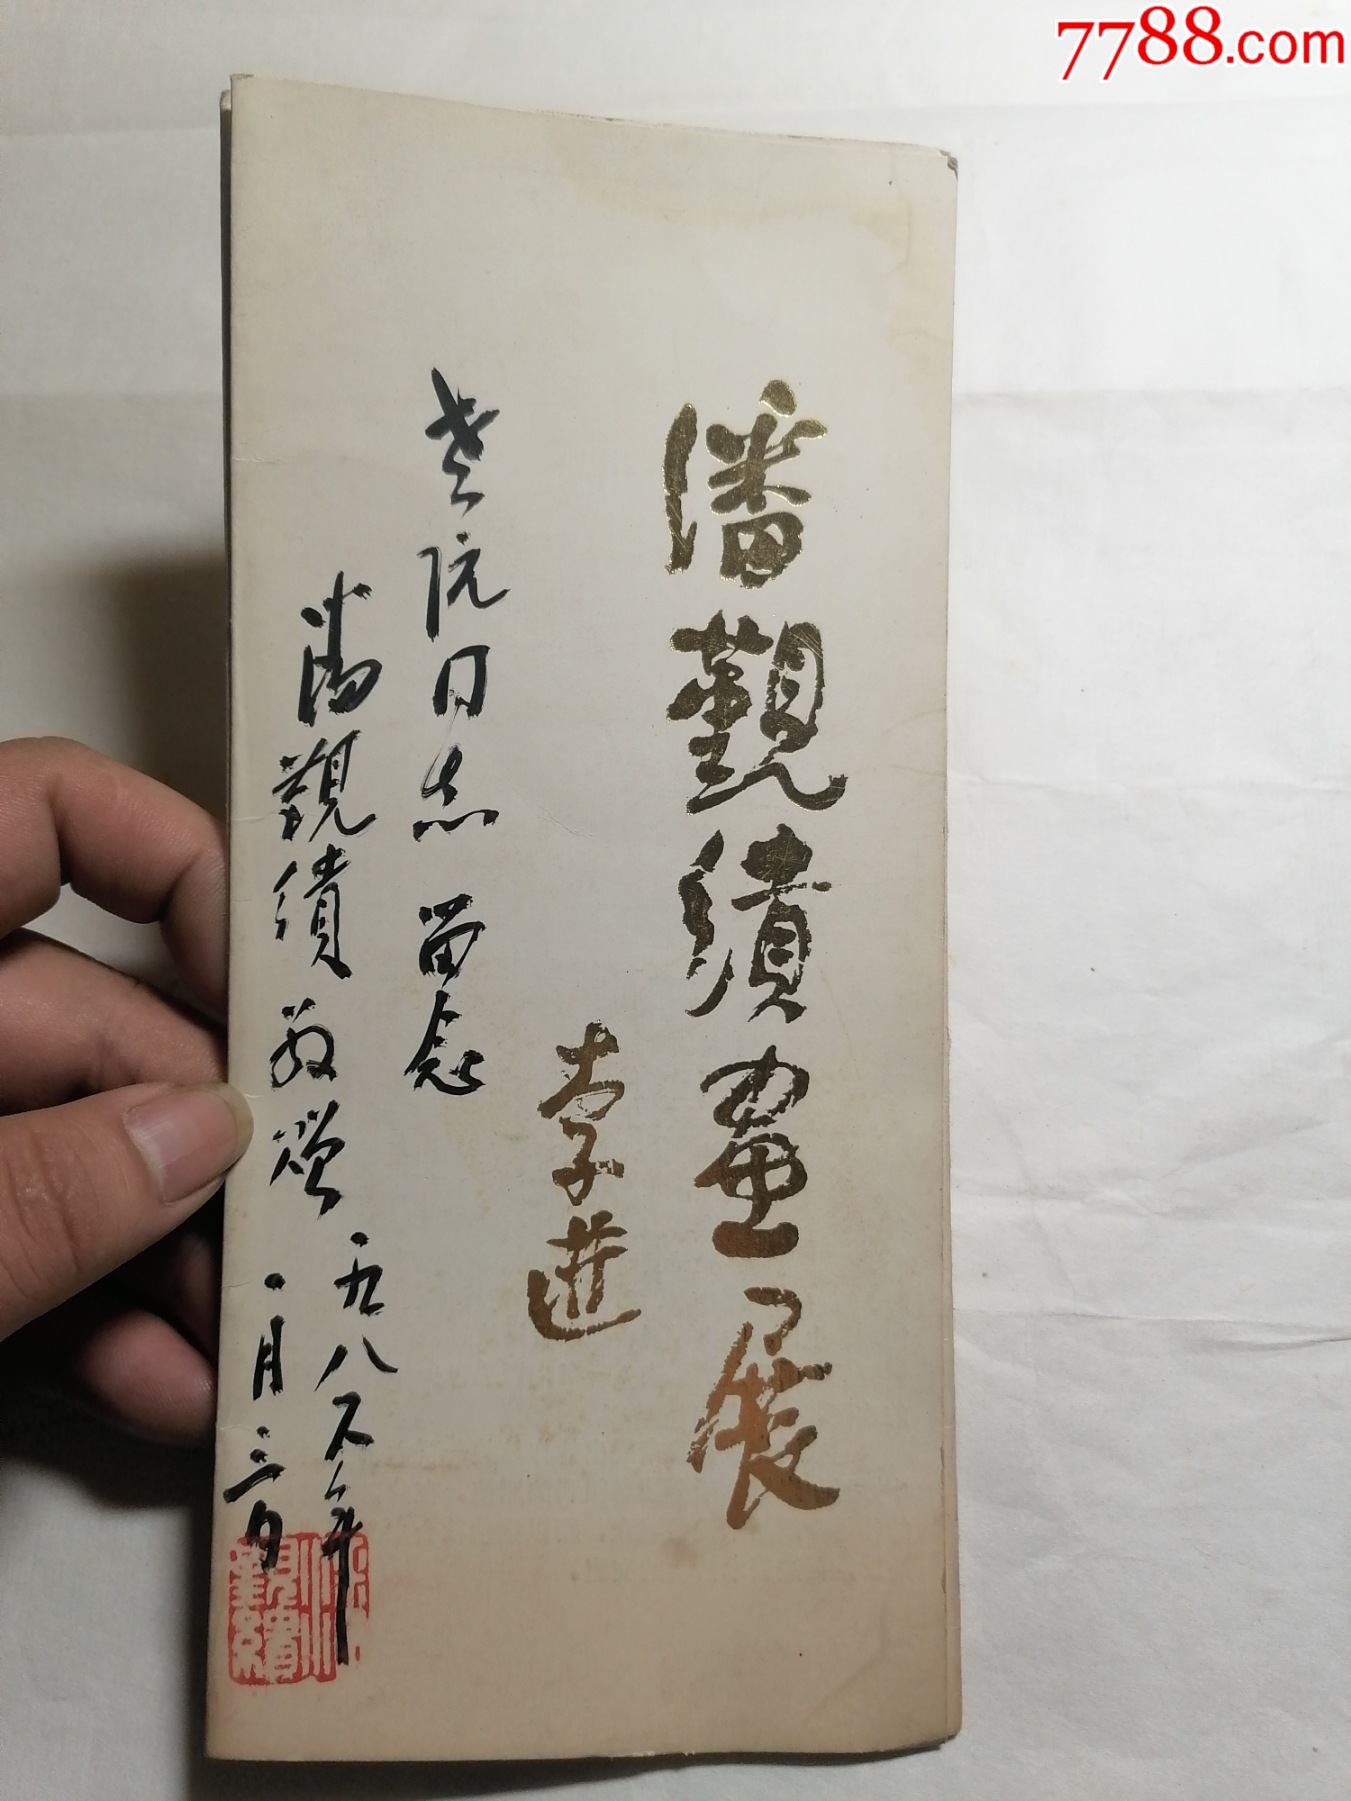 7788.com
潘觐缋畫展
李進
老阮同志留念
潘觐缋敬赠
一九八六年
一月三日